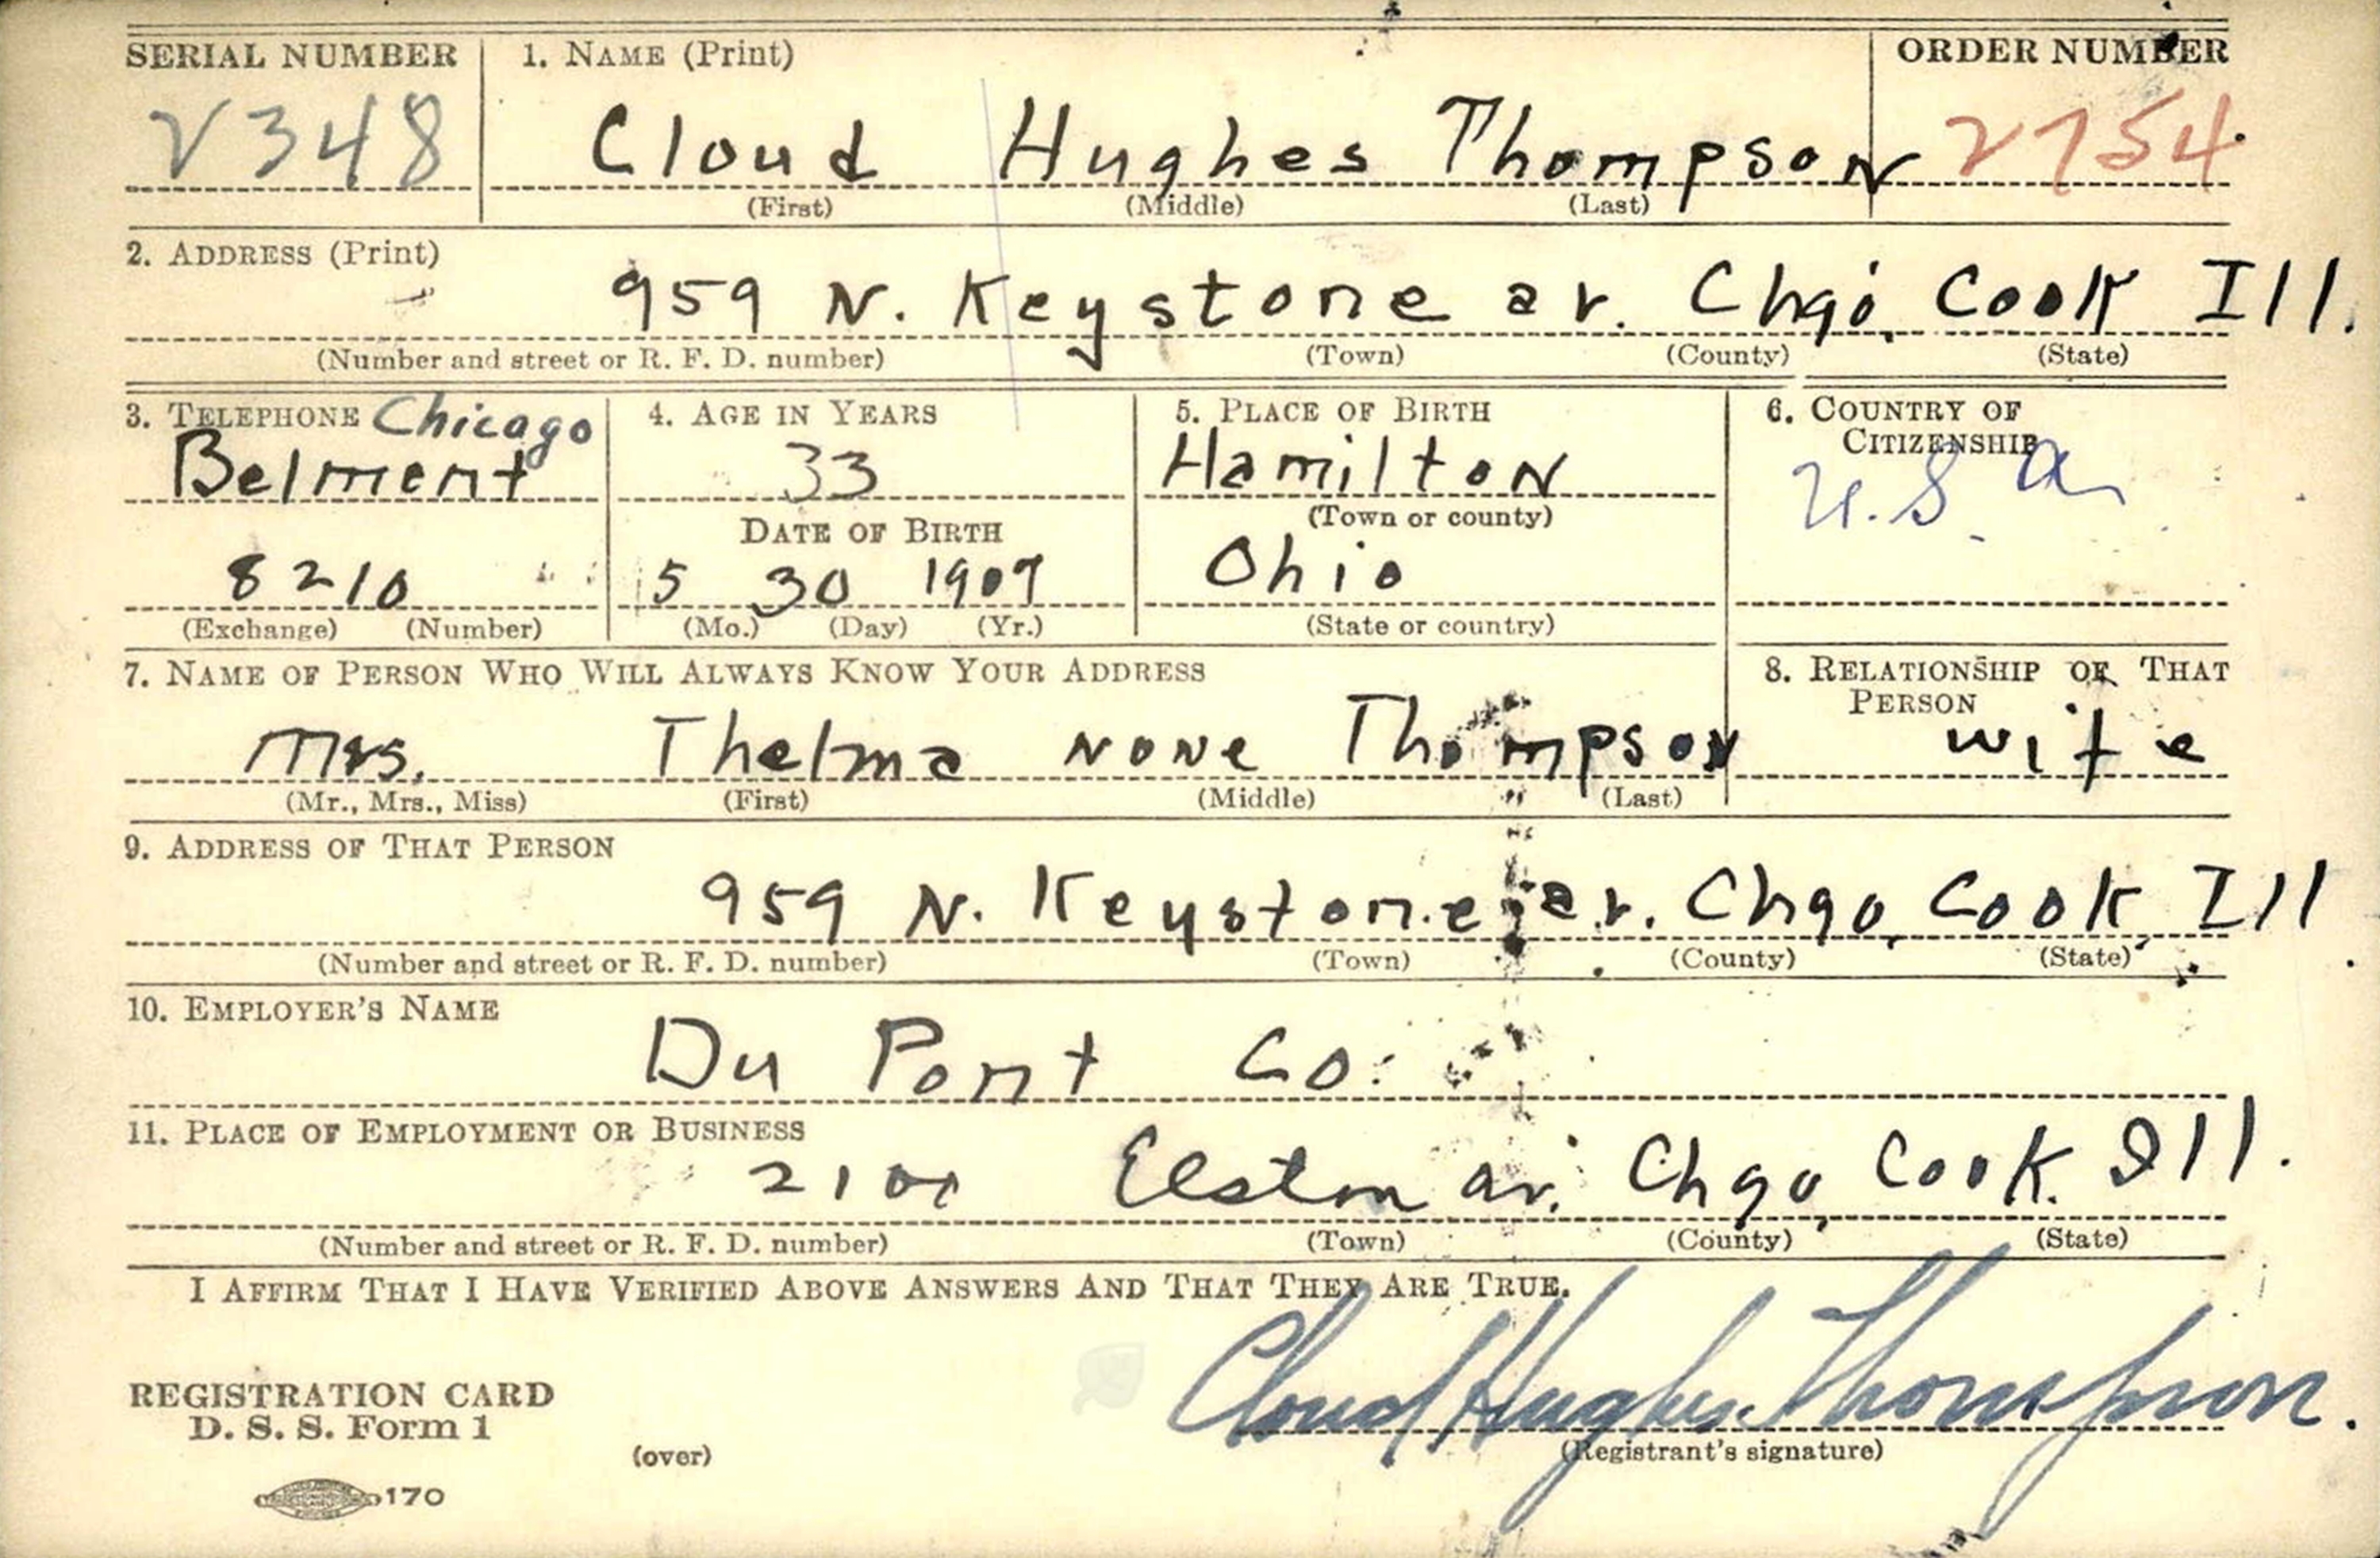 SERIAL NUMBER 1. NAME (Print) ORDER NUMBER
V348 Cloud Hughes Thompson 2754
(First) (Middle) (Last)
2. ADDRESS (Print)
959 N. Keystone av. Chgo, Cook Ill.
(Number and street or R. F. D. number) (Town) (County) (State)
3. TELEPHONE Chicago 4. AGE IN YEARS 5. PLACE OF BIRTH 6. COUNTRY OF
CITIZENSHIP
Belmont 33 Hamilton U.S.A
DATE OF BIRTH (Town or county)
8210 5 30 1907 Ohio
(Exchange) (Number) (Mo.) (Day) (Yr.) (State or country)
7. NAME OF PERSON WHO WILL ALWAYS KNOW YOUR ADDRESS 8. RELATIONSHIP OF THAT
PERSON
Mrs. Thelma None Thompson wife
(Mr., Mrs., Miss) (First) (Middle) (Last)
9. ADDRESS OF THAT PERSON
959 N. Keystone av. Chgo, Cook, Ill
(Number and street or R. F. D. number) (Town) (County) (State)
10. EMPLOYER'S NAME
Du Pont Co.
11. PLACE OF EMPLOYMENT OR BUSINESS
2100 Elston av. Chgo, Cook. Ill.
(Number and street or R. F. D. number) (Town) (County) (State)
I AFFIRM THAT I HAVE VERIFIED ABOVE ANSWERS AND THAT THEY ARE TRUE.
Cloud Hughes Thompson.
REGISTRATION CARD
D. S. S. Form 1
(over) (Registrant's signature)
170